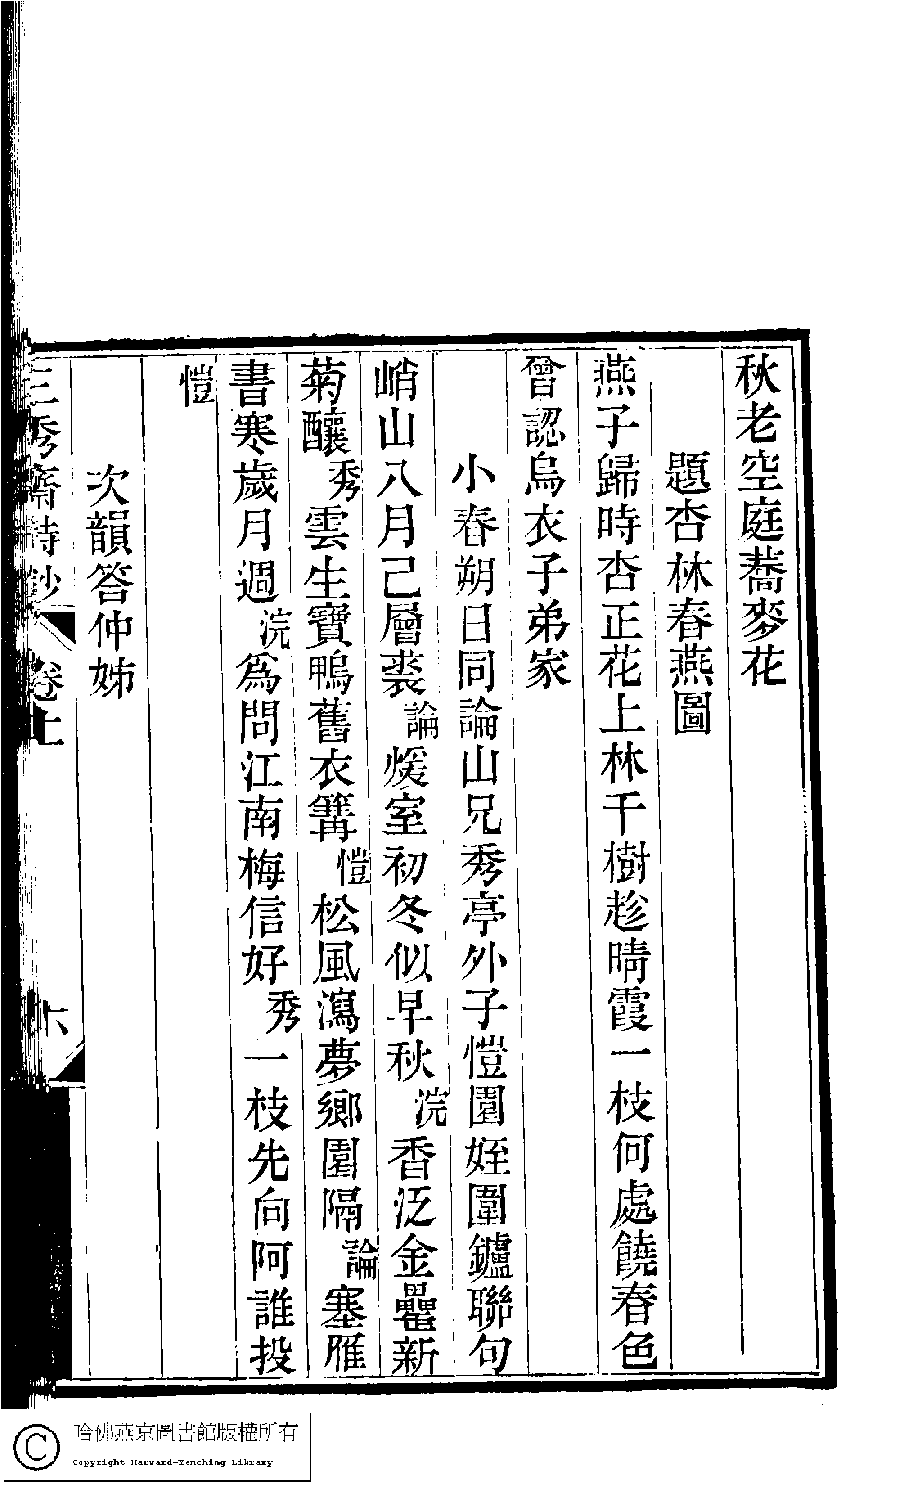 秋老空庭蕎麥花
題杏林春燕圖
燕子歸時杏正花上林千樹趁晴霞一枝何處饒春色
曾認烏衣子弟家
小春朔日同論山兄秀亭外子愷園姪圍鑪聯句
峭山八月己層裘論煖室初冬似早秋浣香泛金罍新
菊釀秀雲生寶鴨舊衣篝愷松風瀉夢鄉園隔論塞雁
書寒歲月遒浣為問江南梅信好秀一枝先向阿誰投
愷
次韻答仲姊
三秀齋詩鈔 卷上 六
哈佛燕京圖書館版權所有
Copyright Harvard-Yenching Library